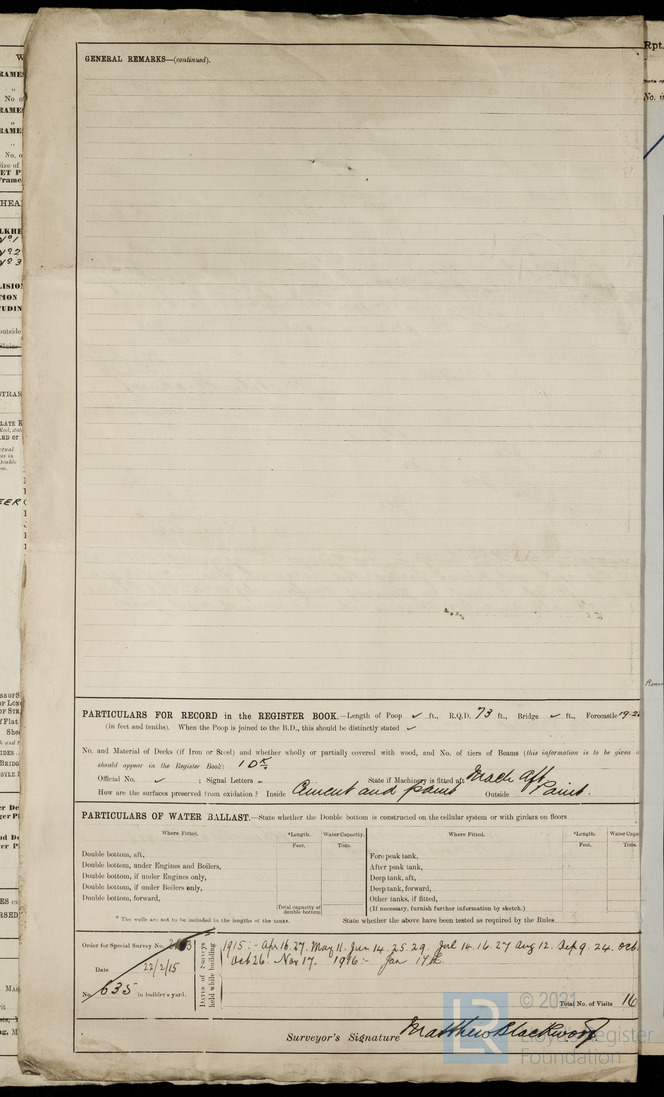 GENERAL REMARKS—(continued).
PARTICULARS FOR RECORD in the REGISTER BOOK.—Length of Poop ✓ ft., R.Q.D. 73 ft., Bridge ✓ ft., Forecastle
(in feet and tenths). When the Poop is joined to the B.D., this should be distinctly stated ✓
No. and Material of Decks (if Iron or Steel) and whether wholly or partially covered with wood, and No. of tiers of Beams (this information is to be given
should appear in the Register Book):
Official No. ✓ ; Signal Letters ✓ State if Machinery is fitted aft Mach Aft
How are the surfaces preserved from oxidation? Inside Cement and paint Outside Paint.
PARTICULARS OF WATER BALLAST.—State whether the Double bottom is constructed on the cellular system or with girders on floors
Where Fitted. *Length. Water Capacity. Where Fitted. *Length. Water Capa
Feet. Tons. Feet. Tons.
Double bottom, aft, Fore peak tank,
Double bottom, under Engines and Boilers, After peak tank,
Double bottom, if under Engines only, Deep tank, aft,
Double bottom, if under Boilers only, Deep tank, forward,
Double bottom, forward, Other tanks, if fitted,
Total capacity of double bottom (If necessary, furnish further information by sketch.)
* The wells are not to be included in the lengths of the tanks. State whether the above have been tested as required by the Rules
Order for Special Survey No.
Date 22/2/15
No. 635 in builder's yard.
Dates of Surveys held while building
1915:- Apr 16. 27. May 11. Jun 14. 25. 29. Jul 14. 16. 27 Aug 12. Sep 9. 24. Oct
Oct 26. Nov 17. 1916:- Jan 17th.
Total No. of Visits 16
Surveyor's Signature Matthew Blackwood
LR
© 2021
Lloyd's Register
Foundation
Rpt.